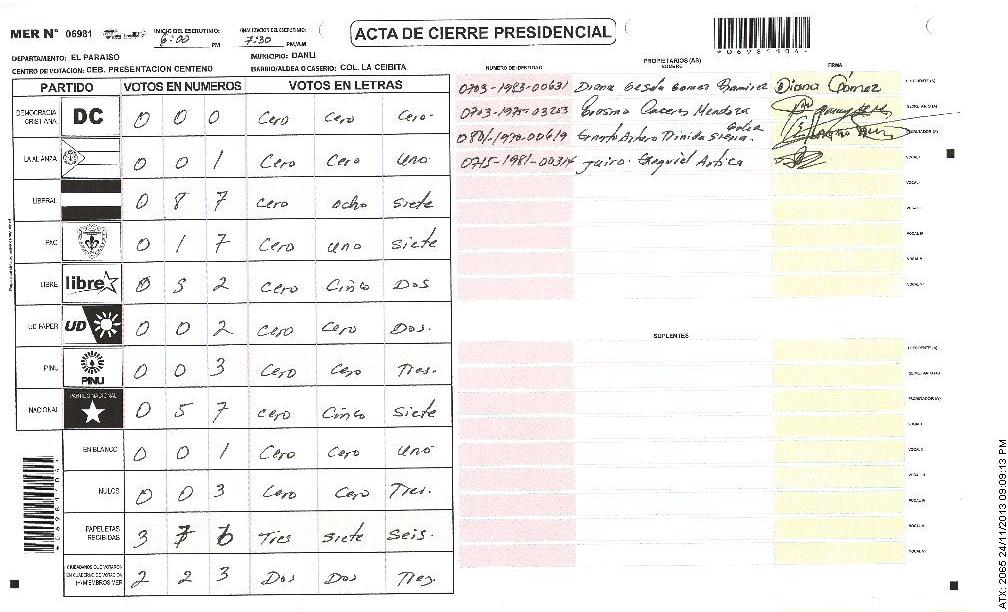 MER N° 06981
INICIO DEL ESCRUTINIO: 6:00 PM
FINALIZACION DEL ESCRUTINIO: 7:30 PM/AM
ACTA DE CIERRE PRESIDENCIAL
*06981104*
DEPARTAMENTO: EL PARAISO MUNICIPIO: DANLI
CENTRO DE VOTACION: CEB. PRESENTACION CENTENO BARRIO/ALDEA O CASERIO: COL. LA CEIBITA
PARTIDO VOTOS EN NUMEROS VOTOS EN LETRAS
DEMOCRACIA CRISTIANA DC 0 0 0 Cero Cero Cero
LA ALIANZA 0 0 1 Cero Cero Uno
LIBERAL 0 8 7 Cero ocho siete
PAC 0 1 7 Cero uno siete
LIBRE libre 0 5 2 Cero Cinco Dos
UD FAPER UD 0 0 2 Cero Cero Dos.
PINU PINU 0 0 3 Cero Cero Tres.
NACIONAL PARTIDO NACIONAL 0 5 7 cero Cinco siete
EN BLANCO 0 0 1 Cero Cero uno
NULOS 0 0 3 Cero Cero Tres.
PAPELETAS RECIBIDAS 3 7 6 Tres siete seis.
CIUDADANOS QUE VOTARON EN CUADERNO DE VOTACION (+) MIEMBROS MER 2 2 3 Dos Dos Tres
PROPIETARIOS (AS)
NUMERO DE IDENTIDAD NOMBRE FIRMA
0703-1983-00631 Diana Gomez Ramirez Diana Gómez PRESIDENTE (A)
0703-1975-03203 Erasmo Caceres Mendoza SECRETARIO (A)
0801-1970-00619 ESCRUTADOR (A)
0715-1981-00314 Jairo Ezequiel Artica VOCAL I
VOCAL II
VOCAL III
VOCAL IV
VOCAL V
VOCAL VI
SUPLENTES
PRESIDENTE (A)
SECRETARIO (A)
ESCRUTADOR (A)
VOCAL I
VOCAL II
VOCAL III
VOCAL IV
VOCAL V
VOCAL VI
*06981104*
ATX: 2065 24/11/2013 09:09:13 PM